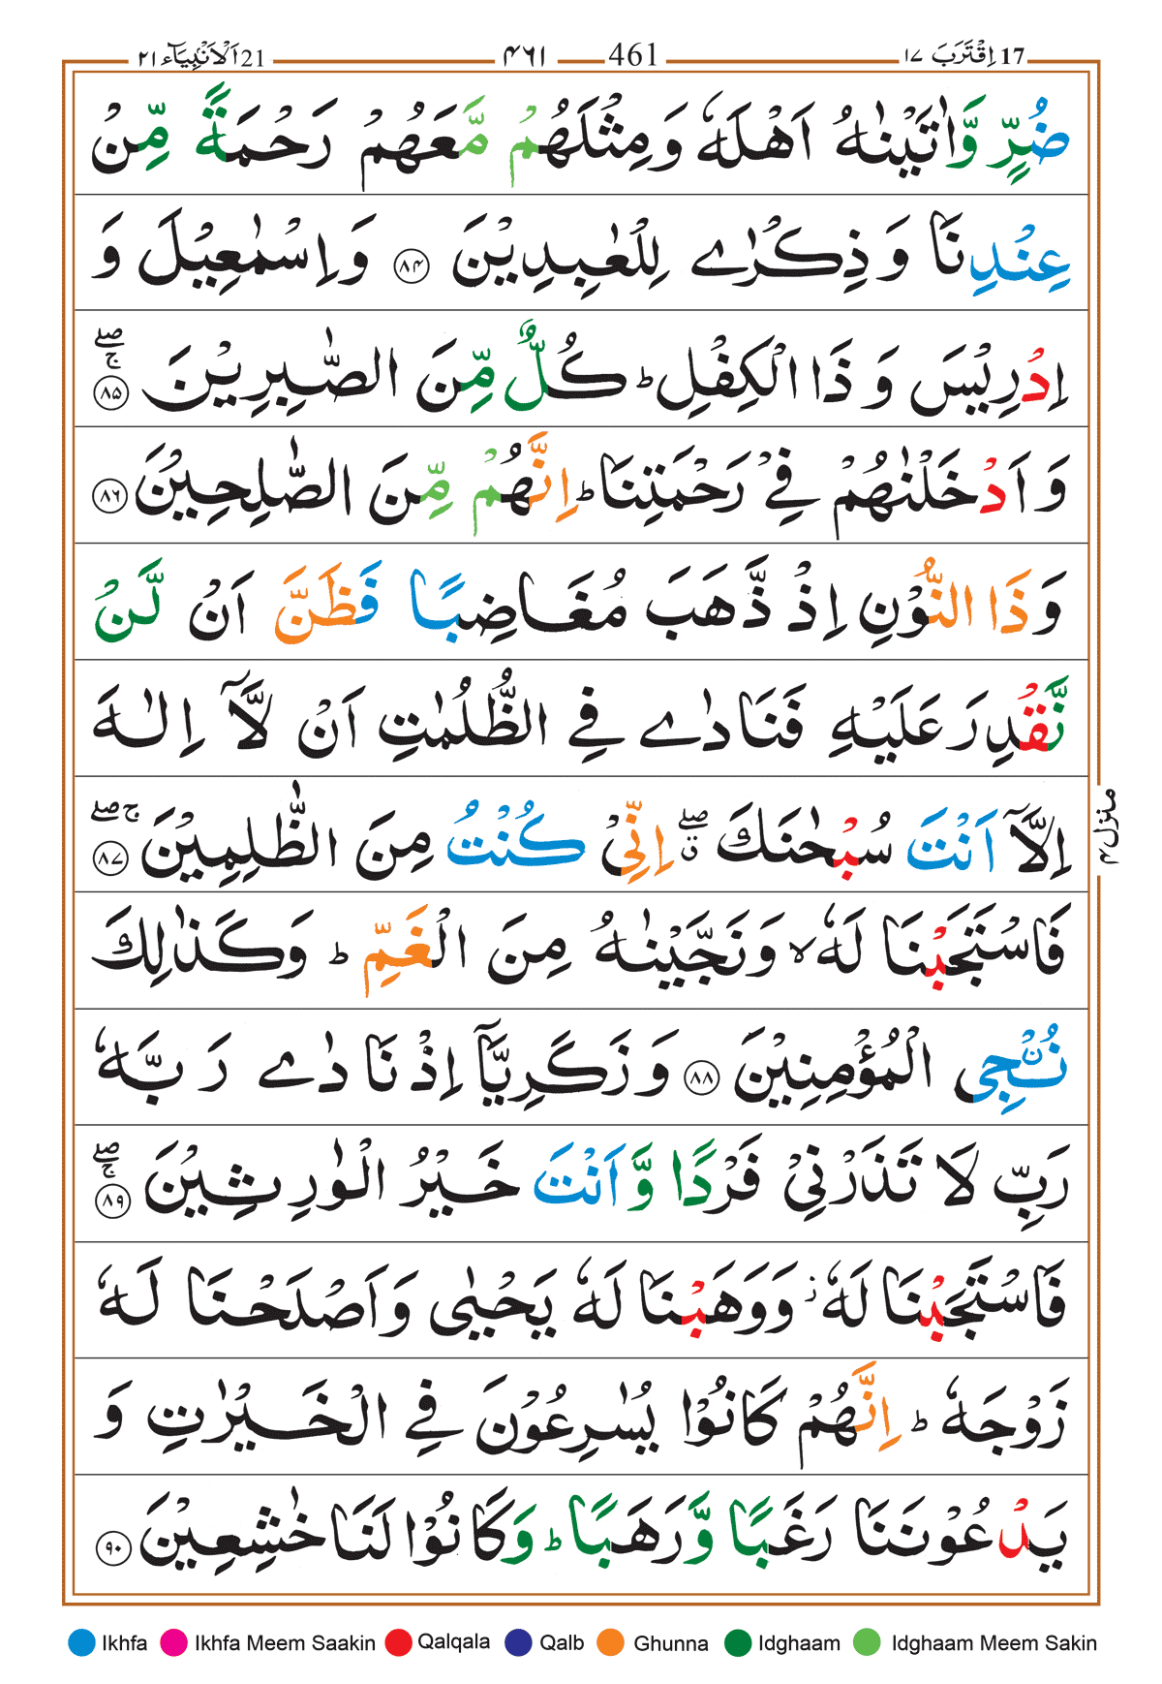 17 اِقْتَرَبَ ۱۷ 461 ۴۶۱ 21 اَلْاَنْۢبِيَآء ۲۱
ضُرٍّ وَّاٰتَيْنٰهُ اَهْلَهٗ وَمِثْلَهُمْ مَّعَهُمْ رَحْمَةً مِّنْ
عِنْدِنَا وَذِكْرٰے لِلْعٰبِدِيْنَ ۸۴ وَاِسْمٰعِيْلَ وَ
اِدْرِيْسَ وَذَا الْكِفْلِ ؕ كُلٌّ مِّنَ الصّٰبِرِيْنَ ۸۵ ۖۚ
وَاَدْخَلْنٰهُمْ فِيْ رَحْمَتِنَا ؕ اِنَّهُمْ مِّنَ الصّٰلِحِيْنَ ۸۶
وَذَا النُّوْنِ اِذْ ذَّهَبَ مُغَاضِبًا فَظَنَّ اَنْ لَّنْ
نَّقْدِرَ عَلَيْهِ فَنَادٰے فِي الظُّلُمٰتِ اَنْ لَّاۤ اِلٰهَ
اِلَّاۤ اَنْتَ سُبْحٰنَكَ ۖ ق اِنِّيْ كُنْتُ مِنَ الظّٰلِمِيْنَ ۸۷ ۚۖ
فَاسْتَجَبْنَا لَهٗ ۙ وَنَجَّيْنٰهُ مِنَ الْغَمِّ ؕ وَكَذٰلِكَ
نُـْۨجِي الْمُؤْمِنِيْنَ ۸۸ وَزَكَرِيَّاۤ اِذْ نَادٰے رَبَّهٗ
رَبِّ لَا تَذَرْنِيْ فَرْدًا وَّاَنْتَ خَيْرُ الْوٰرِثِيْنَ ۸۹ ۖۚ
فَاسْتَجَبْنَا لَهٗ ز وَوَهَبْنَا لَهٗ يَحْيٰى وَاَصْلَحْنَا لَهٗ
زَوْجَهٗ ؕ اِنَّهُمْ كَانُوْا يُسٰرِعُوْنَ فِي الْخَيْرٰتِ وَ
يَدْعُوْنَنَا رَغَبًا وَّرَهَبًا ؕ وَكَانُوْا لَنَا خٰشِعِيْنَ ۹۰
منزل ۴
Ikhfa Ikhfa Meem Saakin Qalqala Qalb Ghunna Idghaam Idghaam Meem Sakin